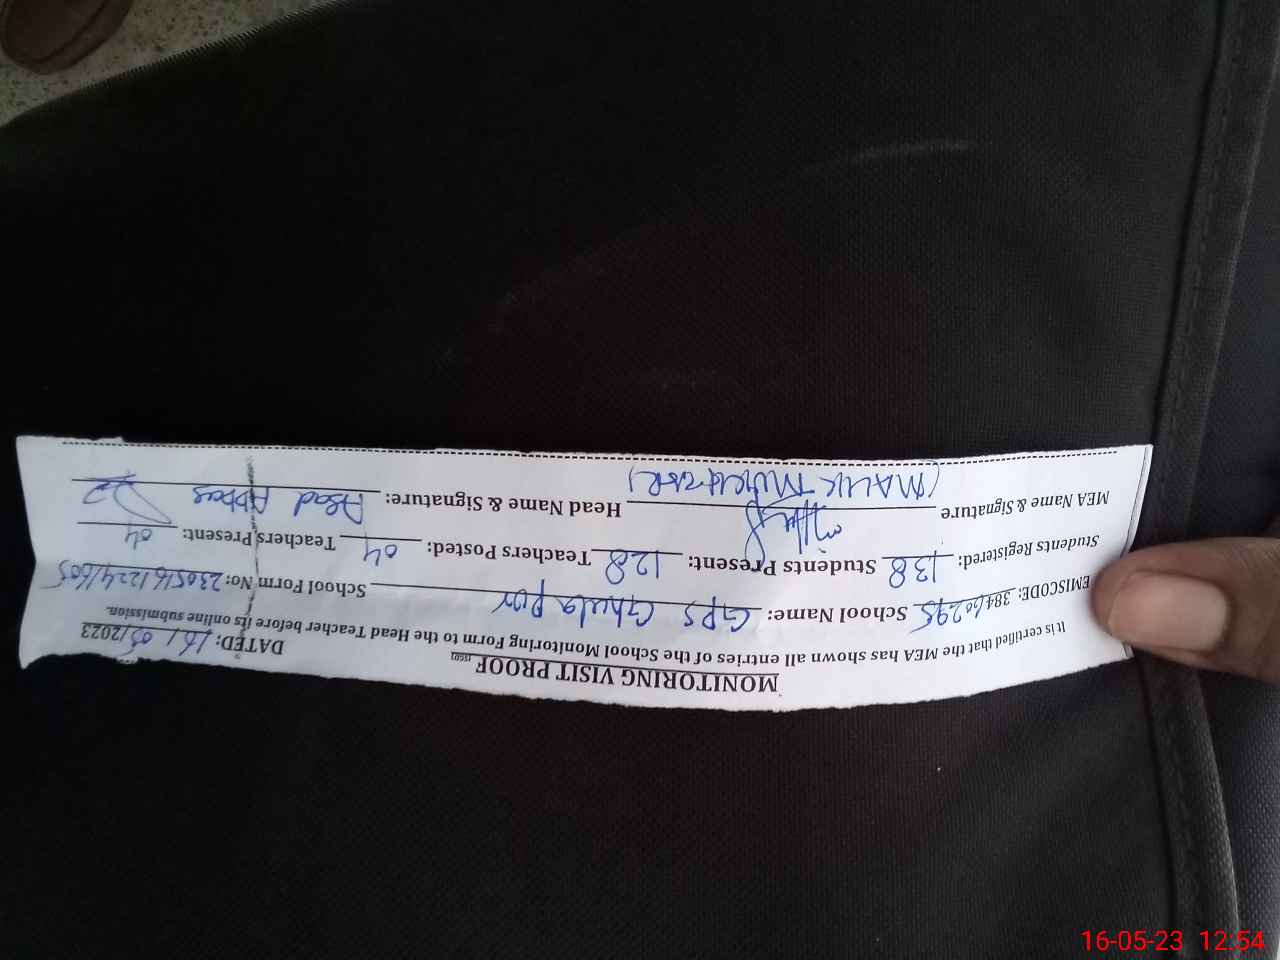 MONITORING VISIT PROOF
DATED: 16/05/2023
It is certified that the MEA has shown all entries of the School Monitoring Form to the Head Teacher before its online submission.
EMISCODE: 38460295 School Name: GPS Ghula pur School Form No: 23051612241605
Students Registered: 138 Students Present: 128 Teachers Posted: 04 Teachers Present: 04
MEA Name & Signature Head Name & Signature: Asad Abbas
(MALIK
16-05-23 12:54